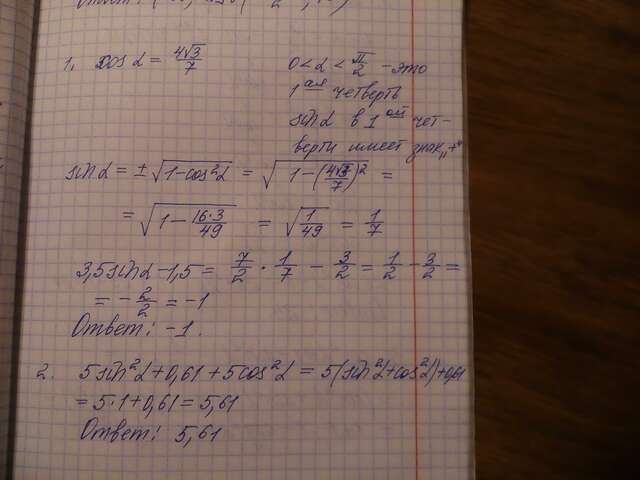 1. cos α = 4√3/7
0 < α < π/2 - это
1 ая четверть
sin α в 1 ой чет-
верти имеет знак „+“
sin α = ± √(1-cos²α) = √(1-(4√3/7)²) =
= √(1 - 16·3/49) = √(1/49) = 1/7
3,5 sin α - 1,5 = 7/2 · 1/7 - 3/2 = 1/2 - 3/2 =
= - 2/2 = -1
Ответ: -1.
2. 5 sin²α + 0,61 + 5cos²α = 5(sin²α + cos²α) + 0,61
= 5·1 + 0,61 = 5,61
Ответ: 5,61